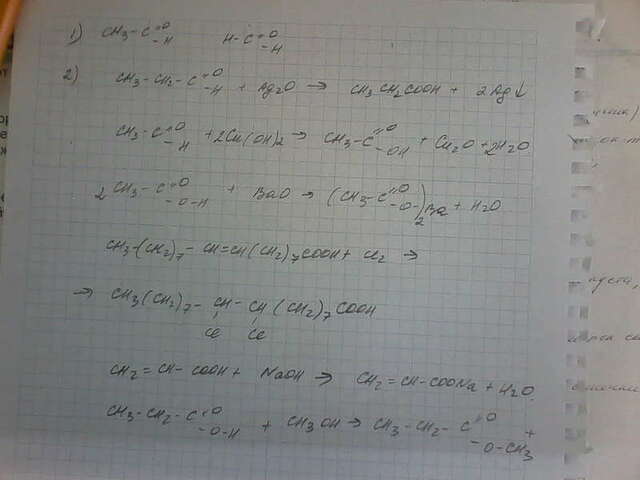 1) CH3-C=O -H H-C=O -H
2) CH3-CH2-C=O -H + Ag2O → CH3CH2COOH + 2Ag↓
CH3-C=O -H + 2Cu(OH)2 → CH3-C=O -OH + Cu2O + 2H2O
2CH3-C=O -O-H + BaO → (CH3-C=O -O-)2Ba + H2O
CH3-(CH2)7-CH=CH(CH2)7COOH + Cl2 →
→ CH3(CH2)7-CH-CH(CH2)7COOH
Cl Cl
CH2=CH-COOH + NaOH → CH2=CH-COONa + H2O
CH3-CH2-C=O -O-H + CH3OH → CH3-CH2-C=O -O-CH3 +